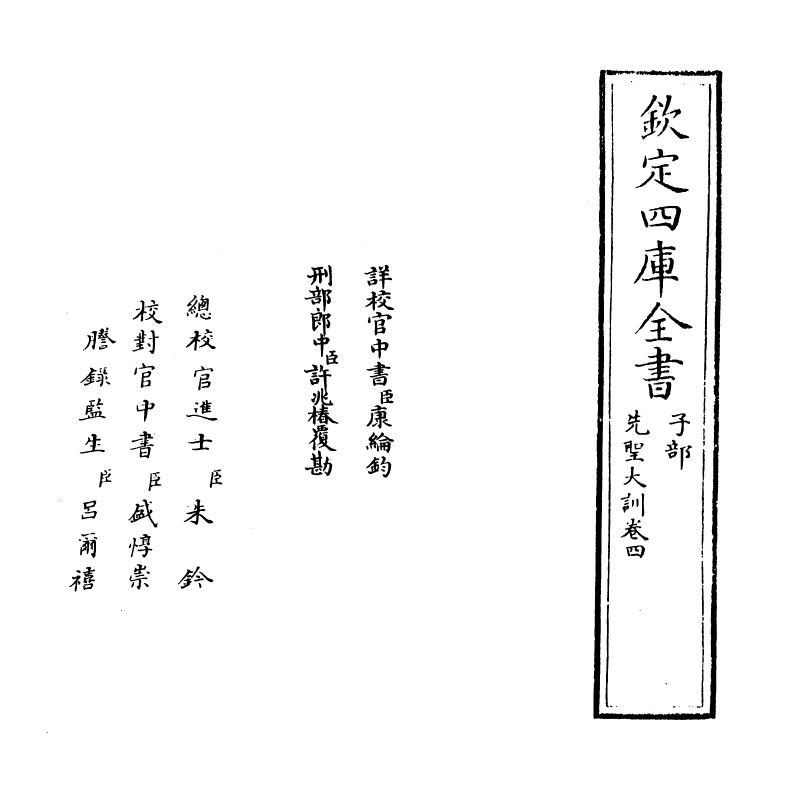 欽定四庫全書
子部
先聖大訓卷四
詳校官中書臣康綸鈞
刑部郎中臣許兆椿覆勘
總校官進士臣朱鈐
校對官中書臣盛惇崇
謄錄監生臣呂爾禧